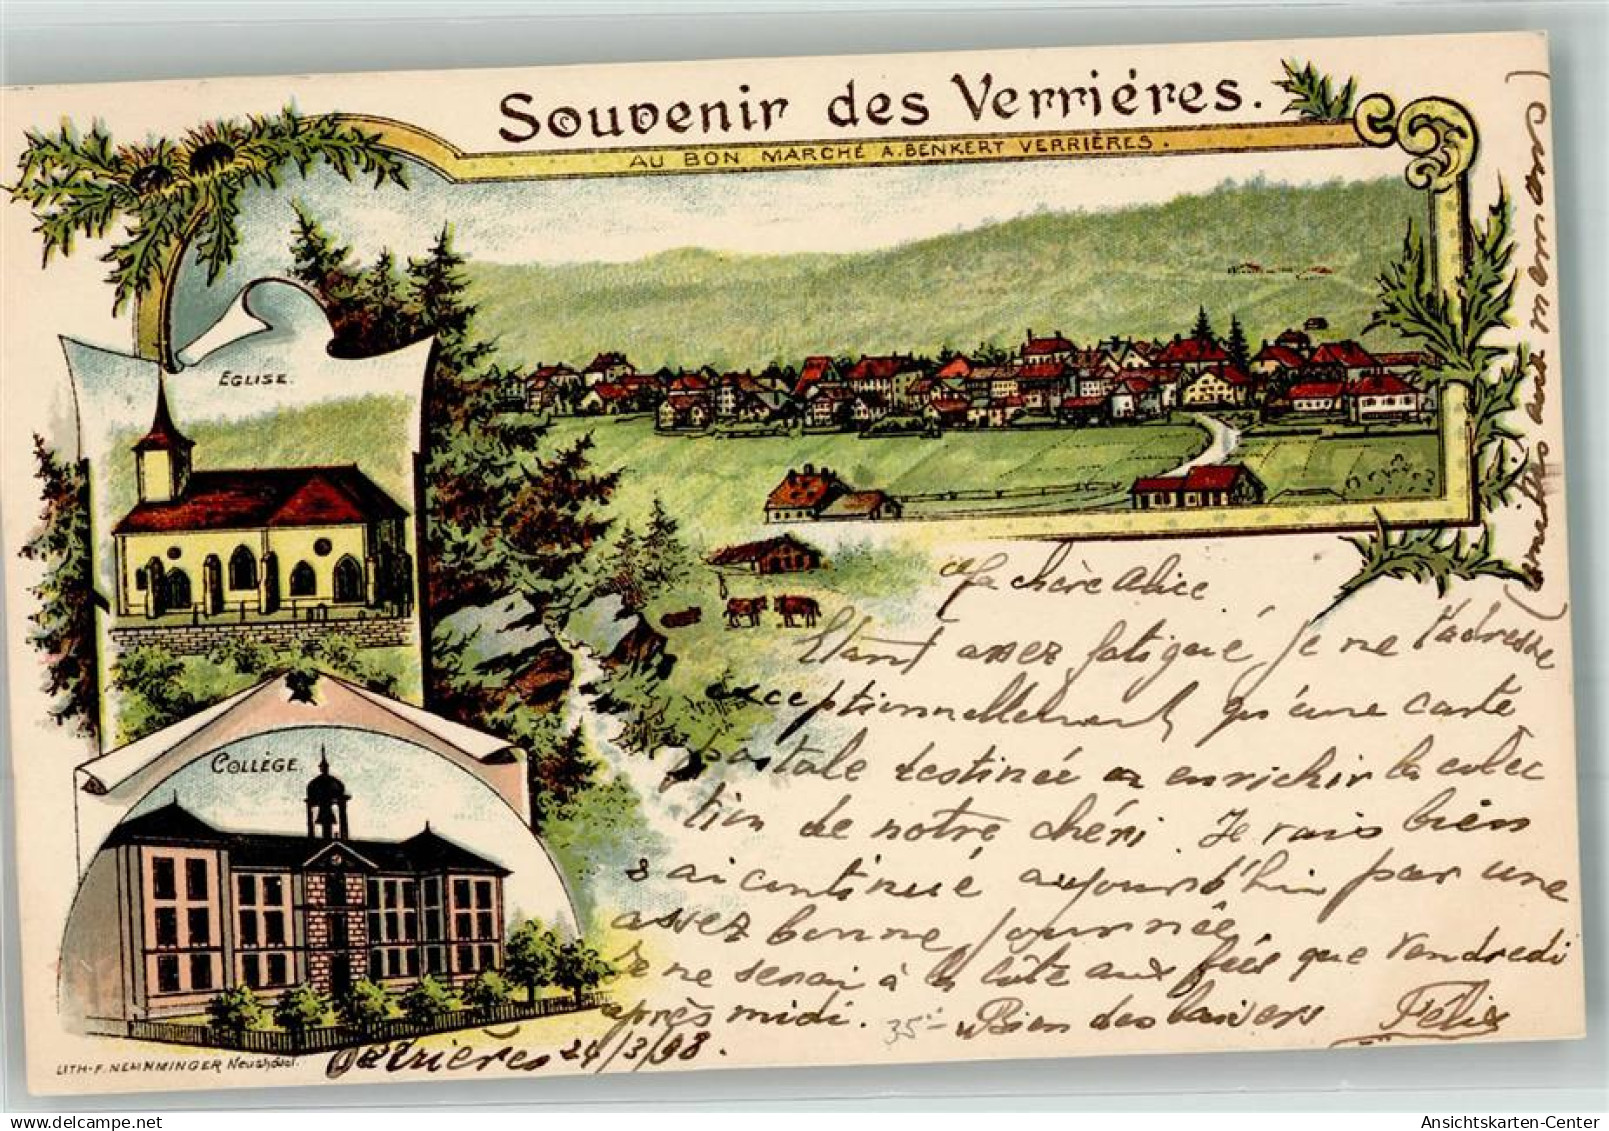 Souvenir des Verriéres.
AU BON MARCHÉ A. BENKERT VERRIÈRES.
EGLISE.
COLLÈGE.
Ma chère Alice.
Etant assez fatigué je ne t'adresse
exceptionnellement qu'une carte
postale destinée a enrichir la collec
tion de notre chéri. Je vais bien
& ai continué aujourd'hui par une
assez bonne journée
Je ne serai à la Côte aux fées que vendredi
après midi. Bien des baisers Félix
35.-
Verrières 24/3/98.
(amitiés aux mamans)
LITH. F. NEMNMINGER Neuchâtel.
Ansichtskarten-Center